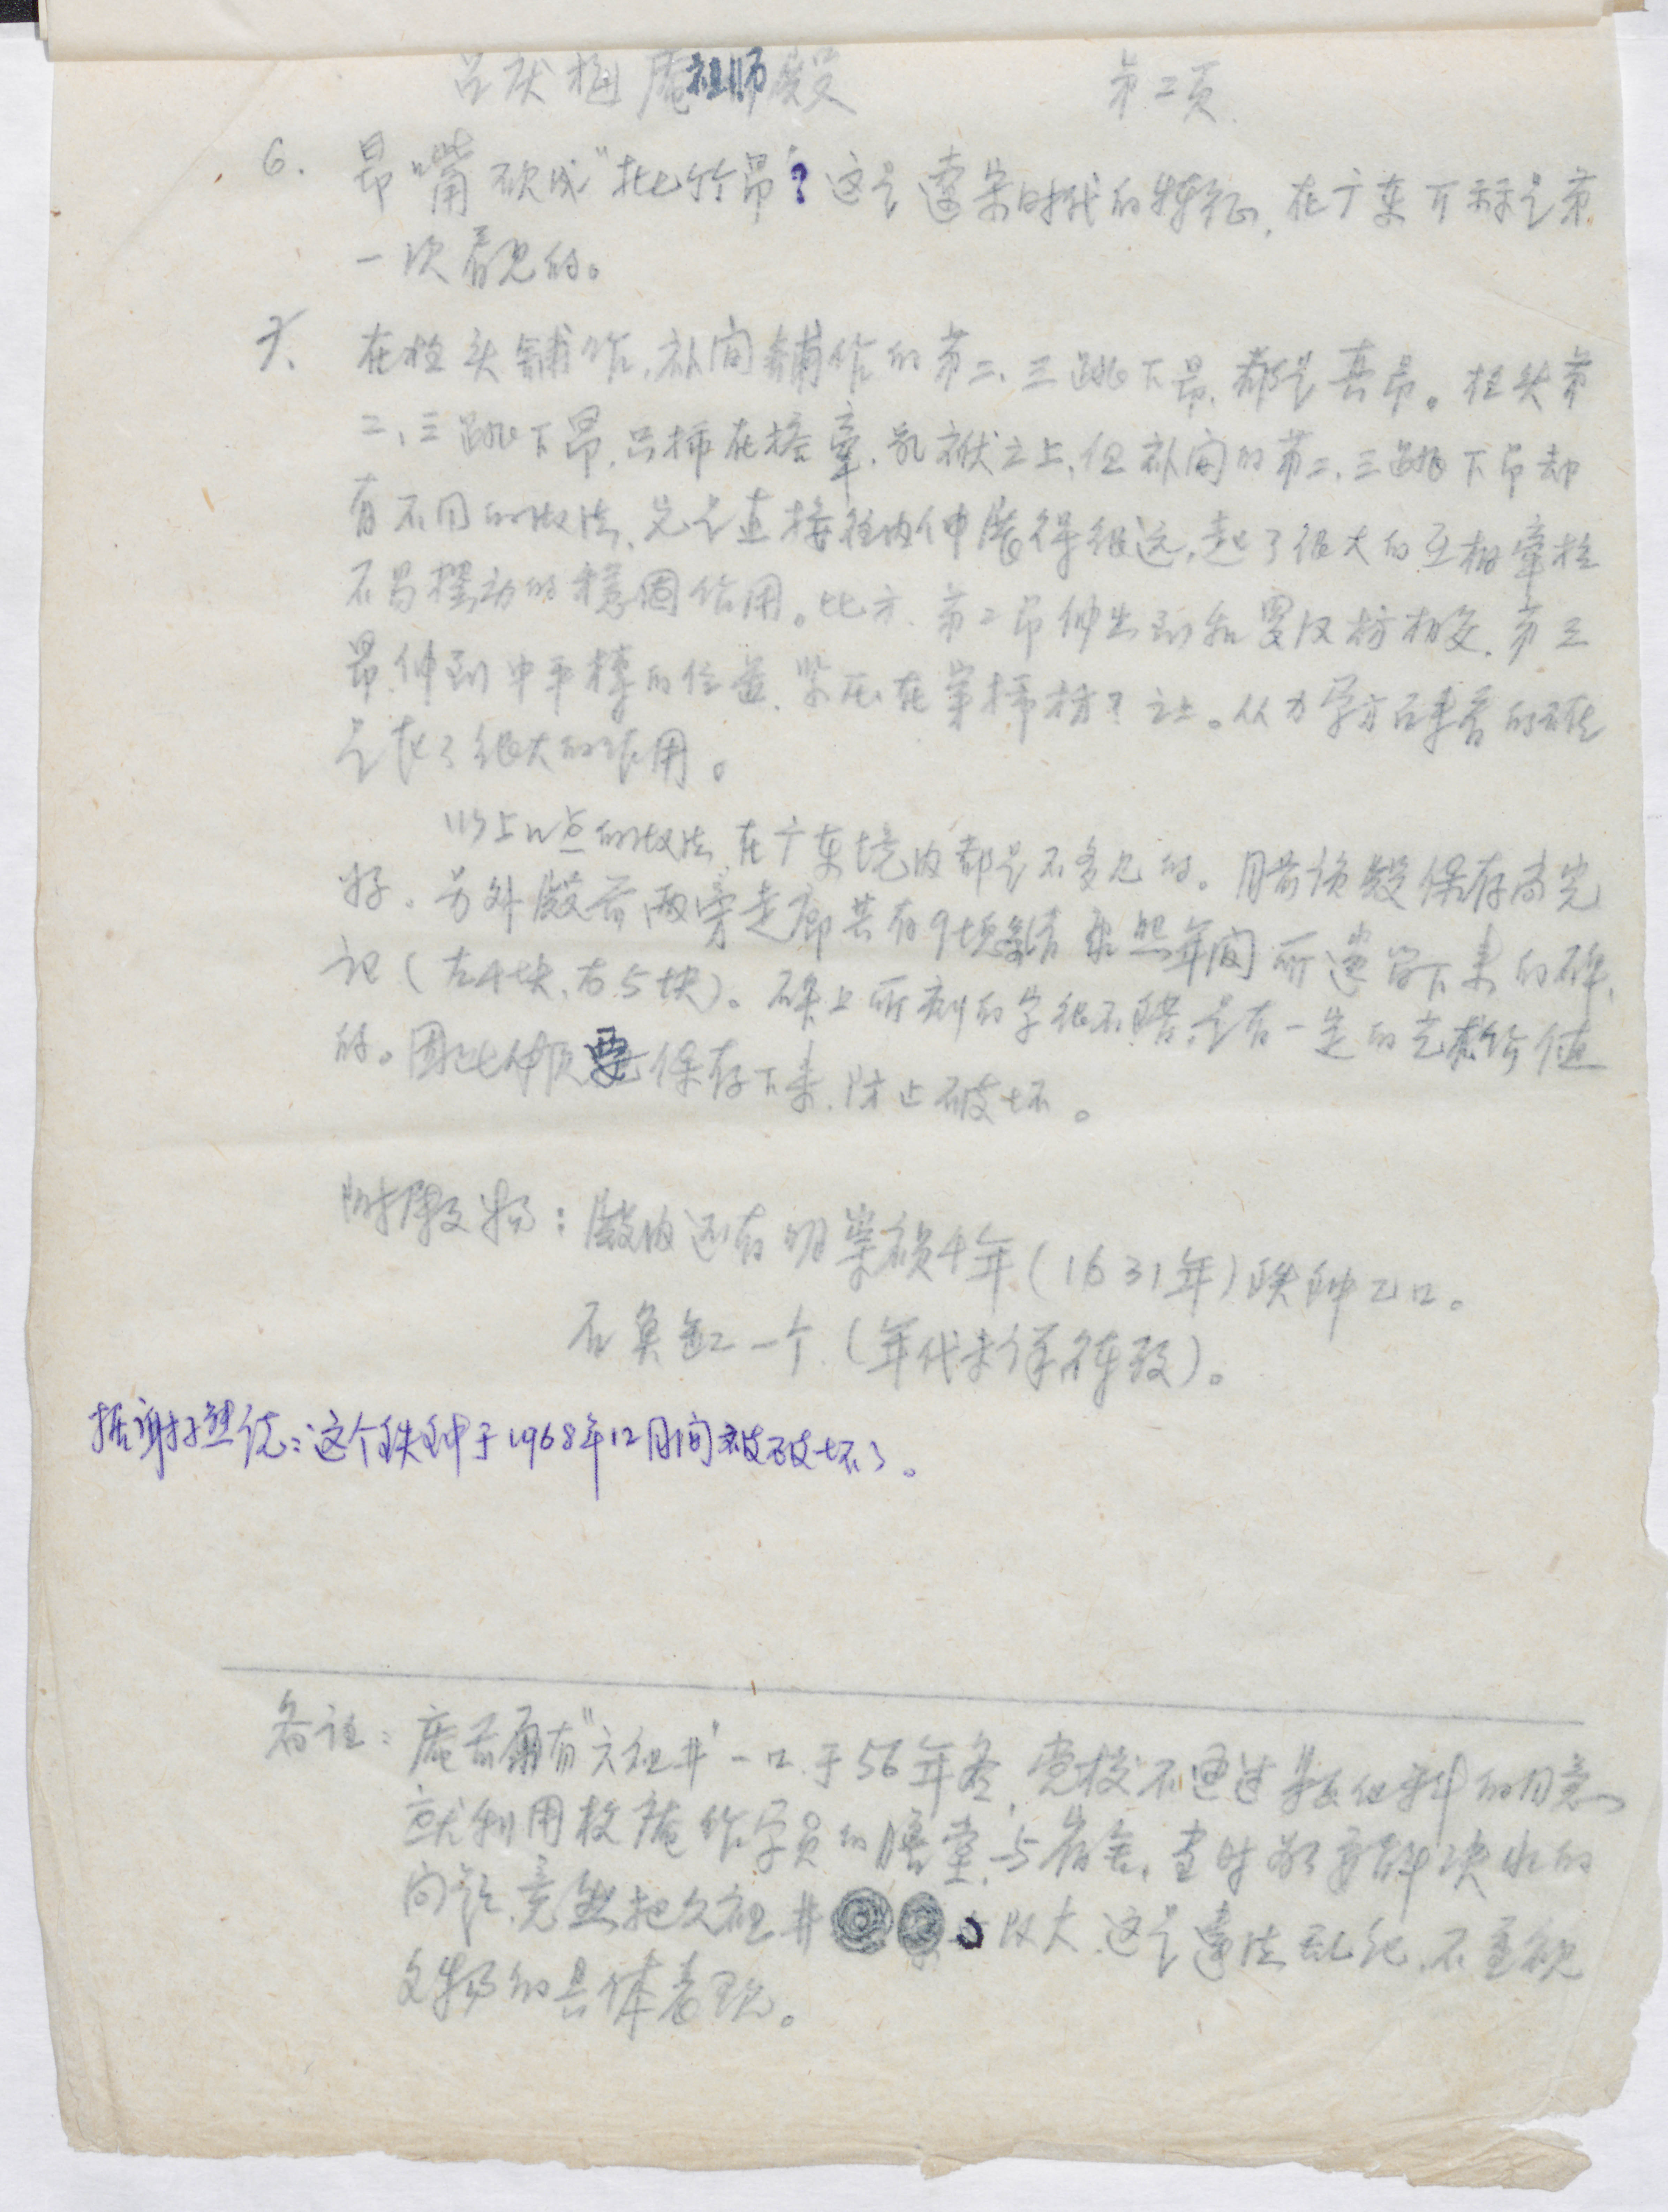 梅庵祖师殿 第二页
6. 昂嘴砍成"批竹昂"？这是辽宋时代的特征，在广东可称是第
一次看见的。
7. 在柱头铺作，补间铺作的第二、三跳下昂，都是真昂。柱头第
二、三跳下昂，只插在搭牵，乳栿之上，但补间的第二、三跳下昂却
有不同的做法，它是直接往内伸展得很远，起了很大的互相牵拉
不易摆动的稳固作用。比方，第二昂伸出到和罗汉枋相交，第三
昂伸到中平槫的位置，紧压在穿插枋？之上。从力学方面来看的确
是起了很大的作用。
以上几点的做法，在广东境内都是不多见的。目前该殿保存尚完
好。另外殿前两旁走廊共有9块清康熙年间所遗留下来的碑
记（左4块，右5块）。碑上所刻的字很不错，是有一定的艺术价值
的。因此必须要保存下来，防止破坏。
附属文物：殿内还有明崇祯4年（1631年）铁钟乙口。
石鱼缸一个（年代未详待考）。
据谢好然说：这个铁钟于1968年12月间被破坏了。
备注：庵前原有"六祖井"一口，于56年冬，党校不通过文化科的同意
就利用梅庵作学员的膳堂与宿舍，当时为了要解决水的
问题，竟然把六祖井改大，这是违法乱纪，不重视
文物的具体表现。